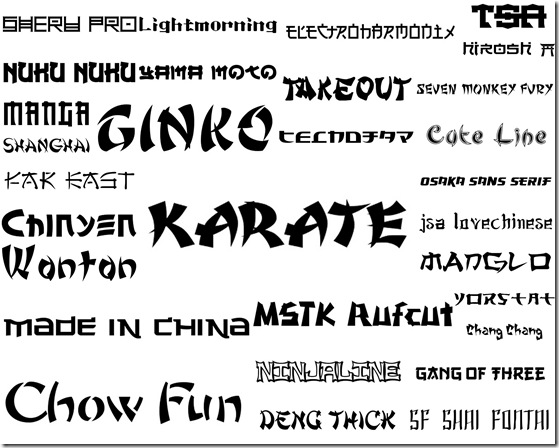 PRO
Lightmorning
ELECTROHARMONIX
TSA
HIROSH A
NUKU NUKU
YAMA MOTO
TAKEOUT
SEVEN MONKEY FURY
MANGA
GINKO
SHANGHAI
Cute Line
EAST
OSAKA SANS SERIF
KARATE
Chinyen
jsa lovechinese
Wonton
MANGLO
YORSTAT
MSTK Rufcut
MADE IN CHINA
Chang Chang
NINJALINE
GANG OF THREE
Chow Fun
DENG THICK
SF SHAI FONTAI